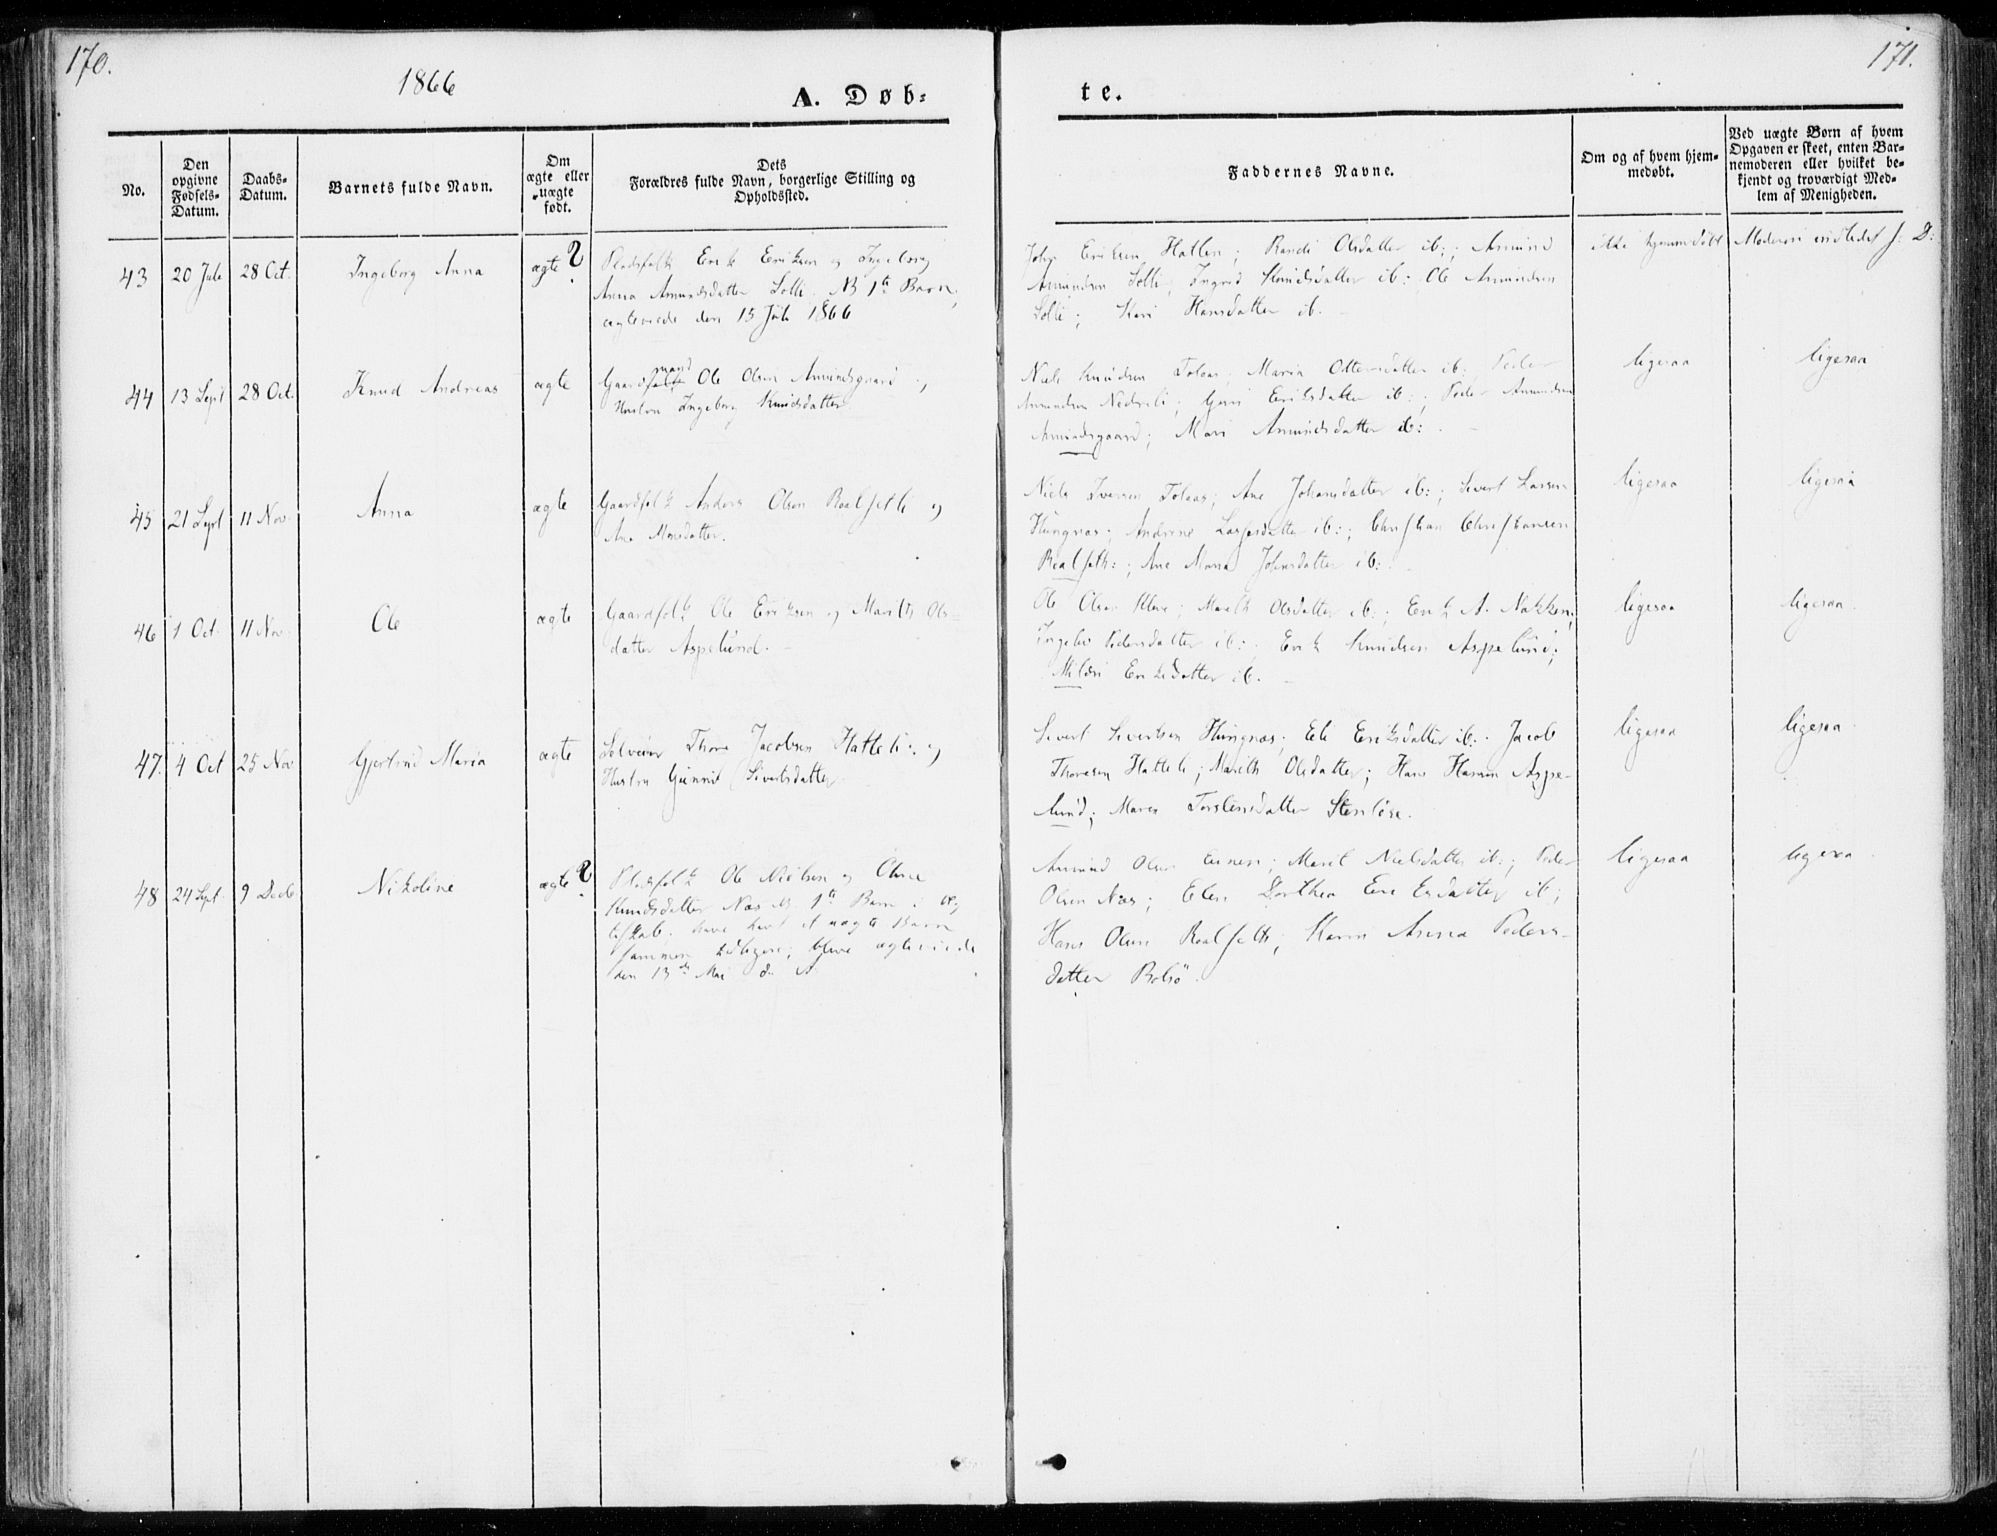 170.
1866
A. Døb-
te.
171.
No.
Den opgivne Fødsels-Datum.
Daabs-Datum.
Barnets fulde Navn.
Om ægte eller uægte født.
Dets
Forældres fulde Navn, borgerlige Stilling og
Opholdssted.
Faddernes Navne.
Om og af hvem hjem-
medøbt.
Ved uægte Børn af hvem
Opgaven er skeet, enten Bar-
nemoderen eller hvilket be-
kjendt og troværdigt Med-
lem af Menigheden.
43 20 Juli 28 Oct. Ingeborg Anna ægte ?
Pladsfolk Erik Eriksen og Ingeborg
Anna Amundsdatter Solli. NB 1te Barn,
ægteviede den 15 Juli 1866
Eriksen Hatlen; Randi Olsdatter ib:; Amund
Amundsen Solli; Ingrid Knudsdatter ib: Ole Amundsen
Solli; Kari Hansdatter ib.
ikke hjemmedøbt
Moderen
44 13 Sept 28 Oct. Knud Andreas ægte
Gaardmand Ole Olsen Amundsgaard og
Hustru Ingeborg Knudsdatter
Niels Knudsen Tolaas; Maria Ottersdatter ib: Peder
Amundsen Nedreli; Guri Eriksdatter ib:; Peder Amundsen
Amundsgaard; Mari Amundsdatter ib:
ligesaa
ligesaa
45 21 Sept 11 Nov. Anna ægte
Gaardfolk Anders Olsen Roalsetli og
Ane Monsdatter.
Niels Iversen Tolaas; Ane Johansdatter ib:; Sivert Lassen
Hungnæs; Andrine Lassesdatter ib:; Christian Christiansen
Roalseth:; Ane Maria Johnsdatter ib:
ligesaa
ligesaa
46 1 Oct. 11 Nov. Ole ægte
Gaardfolk Ole Eriksen og Marith Ols-
datter Aspelund.
Ole Olsen Kleve; Marith Olsdatter ib:; Erik A. Nakken;
Pedersdatter ib:; Erik Knudsen Aspelund;
Mildri Eriksdatter ib.
ligesaa
ligesaa
47. 4 Oct 25 Nov Gjertrud Maria ægte
Thore Jacobsen Hatteli og
Hustru Gunnil Sivertsdatter
Sivert Sivertsen Hungnæs; Eli Eriksdatter ib:. Jacob
Thoresen Hatteli; Marith Olsdatter; Hans Hansen Aspe-
lund; Maren Torstensdatter Stenløse.
ligesaa
ligesaa
48 24 Sept. 9 Decb Nikoline ægte ?
Pladsfolk Ole Nielsen og Oline
Knudsdatter Næs NB. 1te Barn i Æg-
teskab; have havt et uægte Barn
sammen tidligere; bleve ægteviede
den 13de Mai d. A.
Amund Olsen; Marit Nielsdatter ib:; Peder
Olsen Næs; Elen Dorthea Eriksdatter ib;
Hans Olsen Roalseth; Karen Anna Peders-
datter Bolsø.
ligesaa
ligesaa